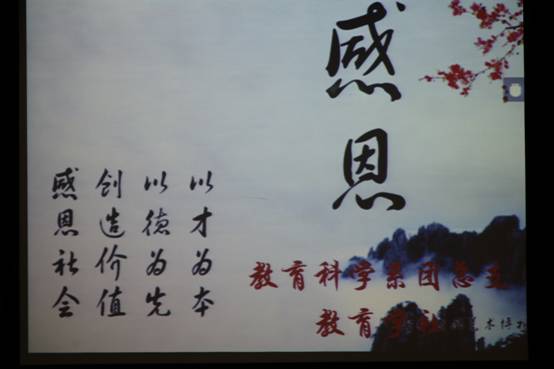 感恩
以才为本
以德为先
创造价值
感恩社会
教育科学系团总支
教育